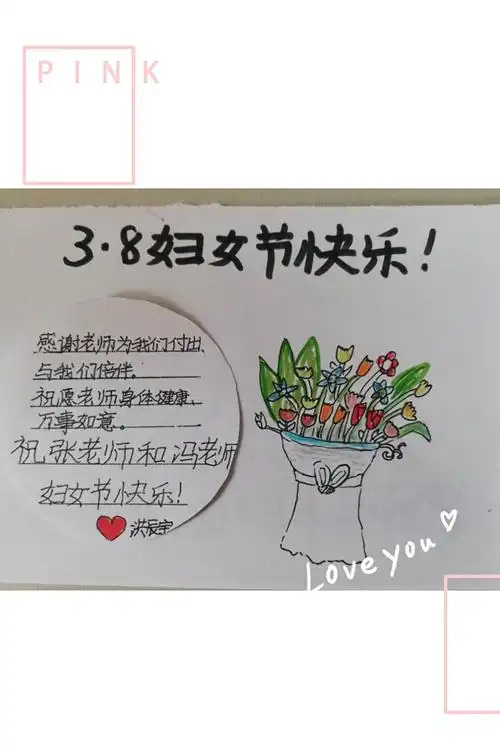 PINK
3·8妇女节快乐!
感谢老师为我们付出、
与我们倍伴。
祝愿老师身体健康、
万事如意。
祝张老师和冯老师
妇女节快乐!
洪辰宇
Love you